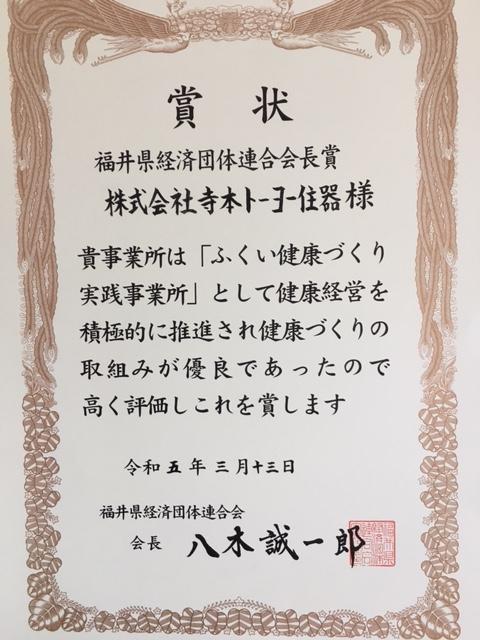 賞状
福井県経済団体連合会長賞
株式会社寺本トーヨー住器様
貴事業所は「ふくい健康づくり
実践事業所」として健康経営を
積極的に推進され健康づくりの
取組みが優良であったので
高く評価しこれを賞します
令和五年三月十三日
福井県経済団体連合会
会長 八木誠一郎